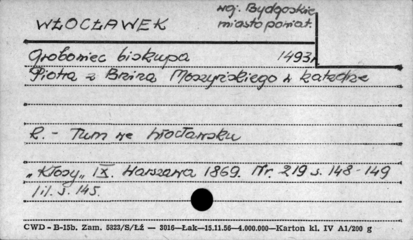 WŁOCŁAWEK
woj. Bydgoskie
miasto powiat.
Grobowiec biskupa 1493r
Piotra z Bnina Moszyńskiego w katedrze
k. - Tum we Włocławku
"Kłosy" IX. Warszawa 1869. Nr. 219 s. 148-149
il. s. 145.
CWD - B-15b. Zam. 5823/S/Łź — 3016—Łak—15.11.56—4.000.000—Karton kl. IV A1/200 g